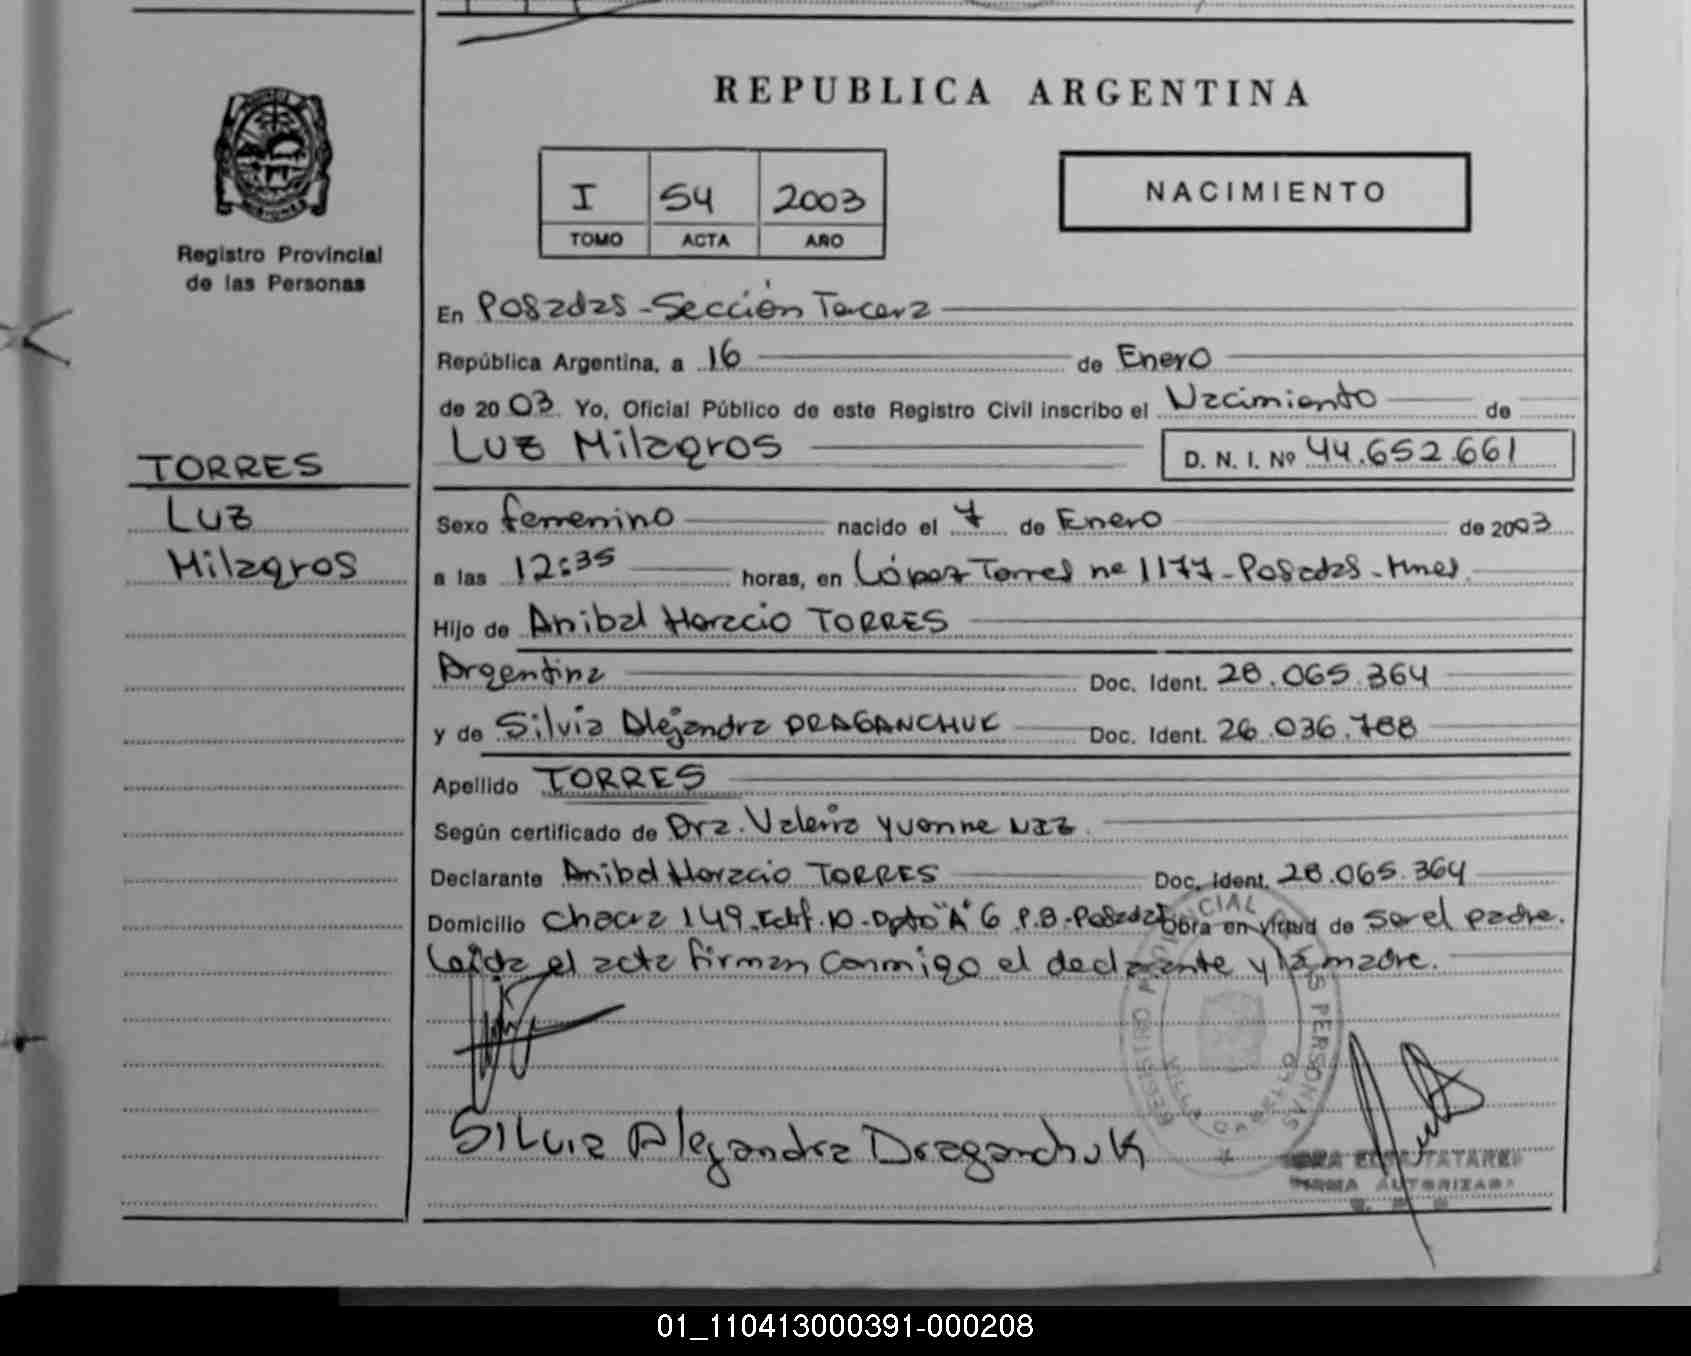 REPUBLICA ARGENTINA
MISIONES
Registro Provincial
de las Personas
I 54 2003
TOMO ACTA AÑO
NACIMIENTO
En Posadas - Sección Tercera
República Argentina, a 16 de Enero
de 2003 Yo, Oficial Público de este Registro Civil inscribo el Nacimiento de
Luz Milagros D. N. I. Nº 44.652.661
TORRES
Luz
Milagros
Sexo femenino nacido el 7 de Enero de 2003
a las 12:35 horas, en López Torres nº 1177 - Posadas - Mnes.
Hijo de Anibal Horacio TORRES
Argentina Doc. Ident. 28.065.364
y de Silvia Alejandra DRAGANCHUK Doc. Ident. 26.036.788
Apellido TORRES
Según certificado de Dra. Valeria Yvonne
Declarante Anibal Horacio TORRES Doc. Ident. 28.065.364
Domicilio Chacra 149. Edif. 10 - Dpto "A" 6 P.B - Posadas Obra en virtud de ser el padre.
Leída el acta firman conmigo el declarante y la madre.
Silvia Alejandra Draganchuk
REGISTRO PROVINCIAL DE LAS PERSONAS
VILLA CABELLO
FIRMA AUTORIZADA
01_110413000391-000208